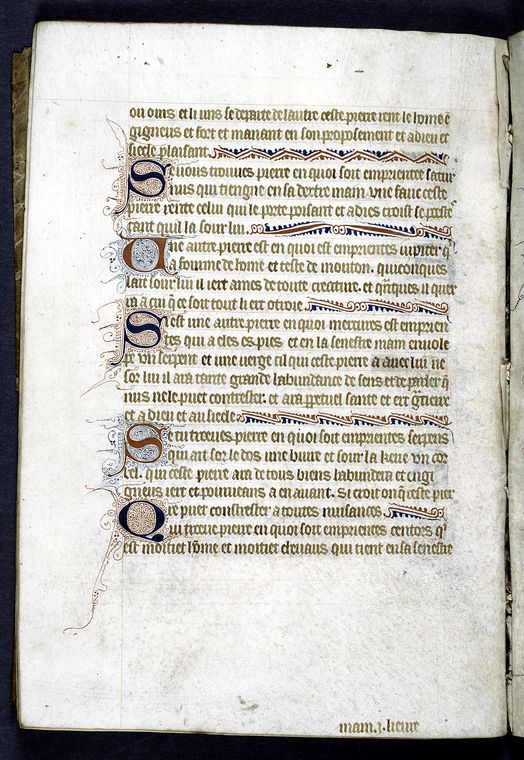 ou ciaus et li uns se departe de lautre ceste pierre rent le home ē
gigneus et fort et manant en son proposement et a dieu et
siecle plaisant.
Se uous trouues pierre en quoi soit emprientee satur
nus qui tiengne en sa dextre main vne fauc ceste
pierre rente celui qui le porte poisant et adies croist se poeste
tant quil la sour lui.
Une autre pierre est en quoi est emprientes iupiter q̄
a fourme de home et teste de mouton. quiconques
lait sour lui il iert ames de toute creature. et q̄nques il quer
ra a qui q̄ ce soit tout li ert otroie.
Sest une autre pierre en quoi mercures est emprien
tes qui a eles es pies. et en la senestre main enuole
pe vn serpent et une uerge cil qui ceste pierre a auec lui ne
sor lui il ara tante grande labundance de sens et de parler q̄
nus nele puet contrester. et ara p̄petuel sante et ert g̃cieux
et a dieu et au siecle
Se tu treeues pierre en quoi soit emprientes serpens
qui ait sor le dos une buire et sour la keue vn cor
bel. qui ceste pierre ara de tous biens labundera et engi
gneus iert et pourueans a en auant. Si croit on q̄ ceste pier
re puet constrester a toutes nuisances
Qui treeue pierre en quoi soit emprientes centors q̄
est moitiet hōme et moitiet cheuaus qui tient en sa senestre
mam. j. lieure